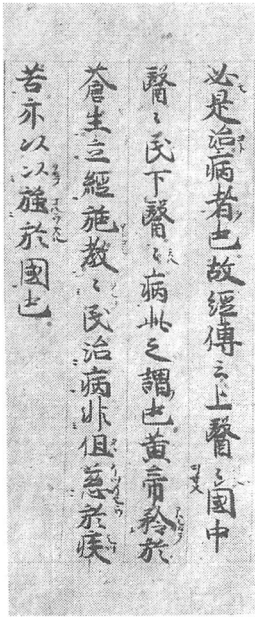 必是治病者也故經傳云上醫〻國中
醫〻民下醫〻病此之謂也黃帝矜於
蒼生立經施教〻民治病非但慈於疾
苦亦以〻施於國也